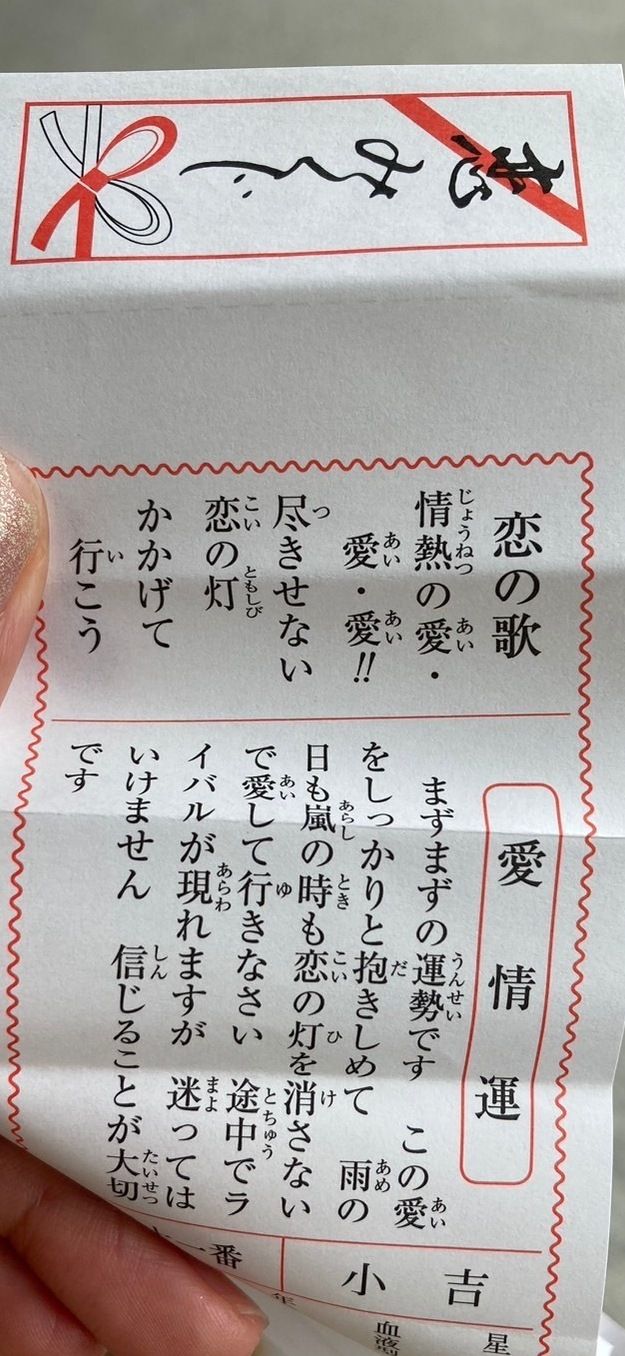 恋みくじ
恋の歌
情熱の愛・
愛・愛!!
尽きせない
恋の灯
かかげて
行こう
愛情運
まずまずの運勢です　この愛
をしっかりと抱きしめて　雨の
日も嵐の時も恋の灯を消さない
で愛して行きなさい　途中でラ
イバルが現れますが　迷っては
いけません　信じることが大切
です
小吉
一番
星
血液型
年